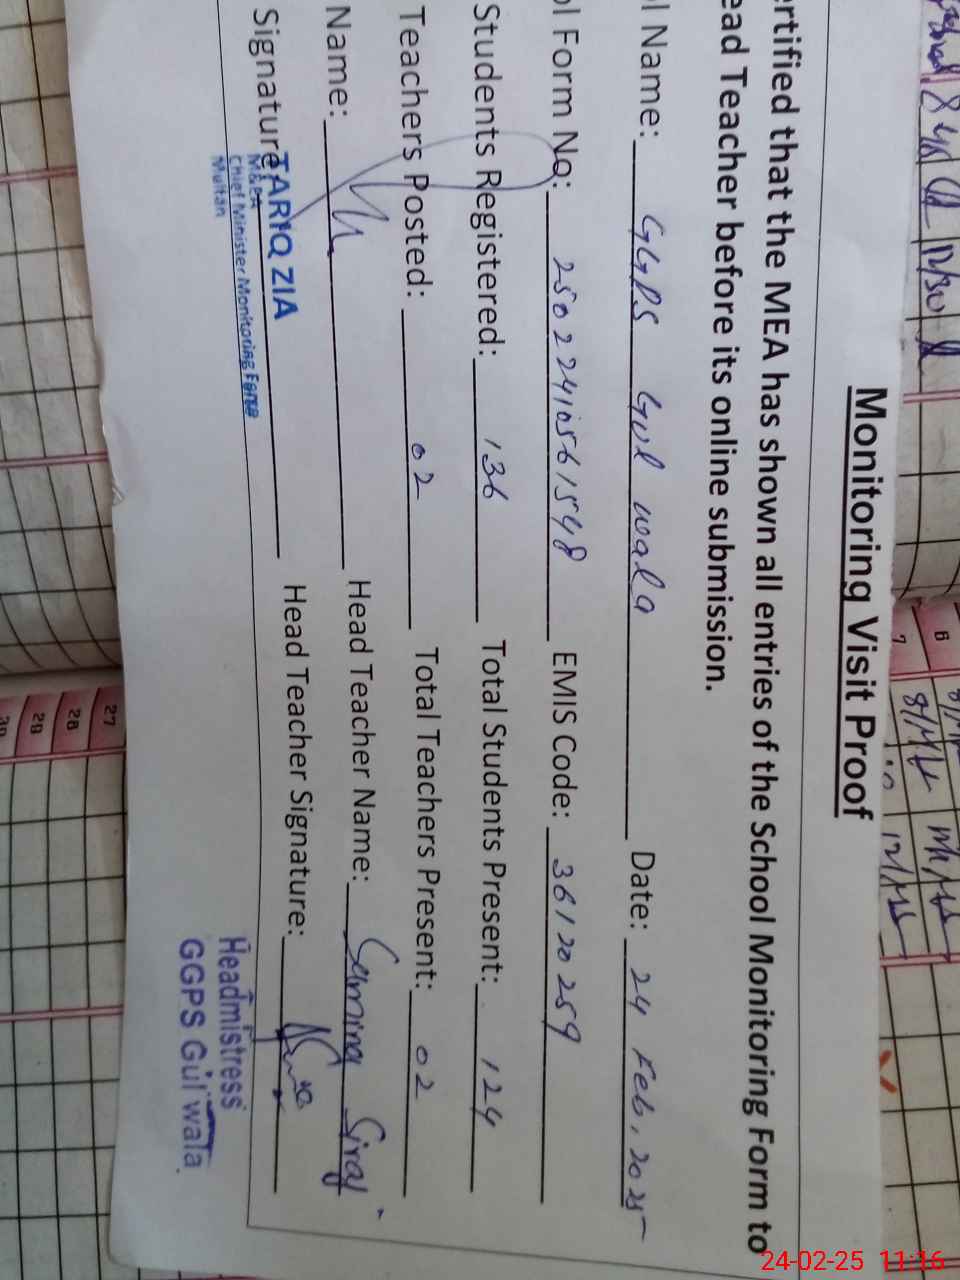 Monitoring Visit Proof
ertified that the MEA has shown all entries of the School Monitoring Form to
ead Teacher before its online submission.
l Name: GGPS Gul wala Date: 24 Feb, 2025
ol Form No: 25022410561548 EMIS Code: 36120259
Students Registered: 136 Total Students Present: 124
Teachers Posted: 02 Total Teachers Present: 02
Name: Head Teacher Name: Samina Siraj
Signature Head Teacher Signature:
TARIQ ZIA
M&EA
Chief Minister Monitoring Force
Multan
Headmistress
GGPS Gul wala
6
7
27
28
29
30
24-02-25 11:16